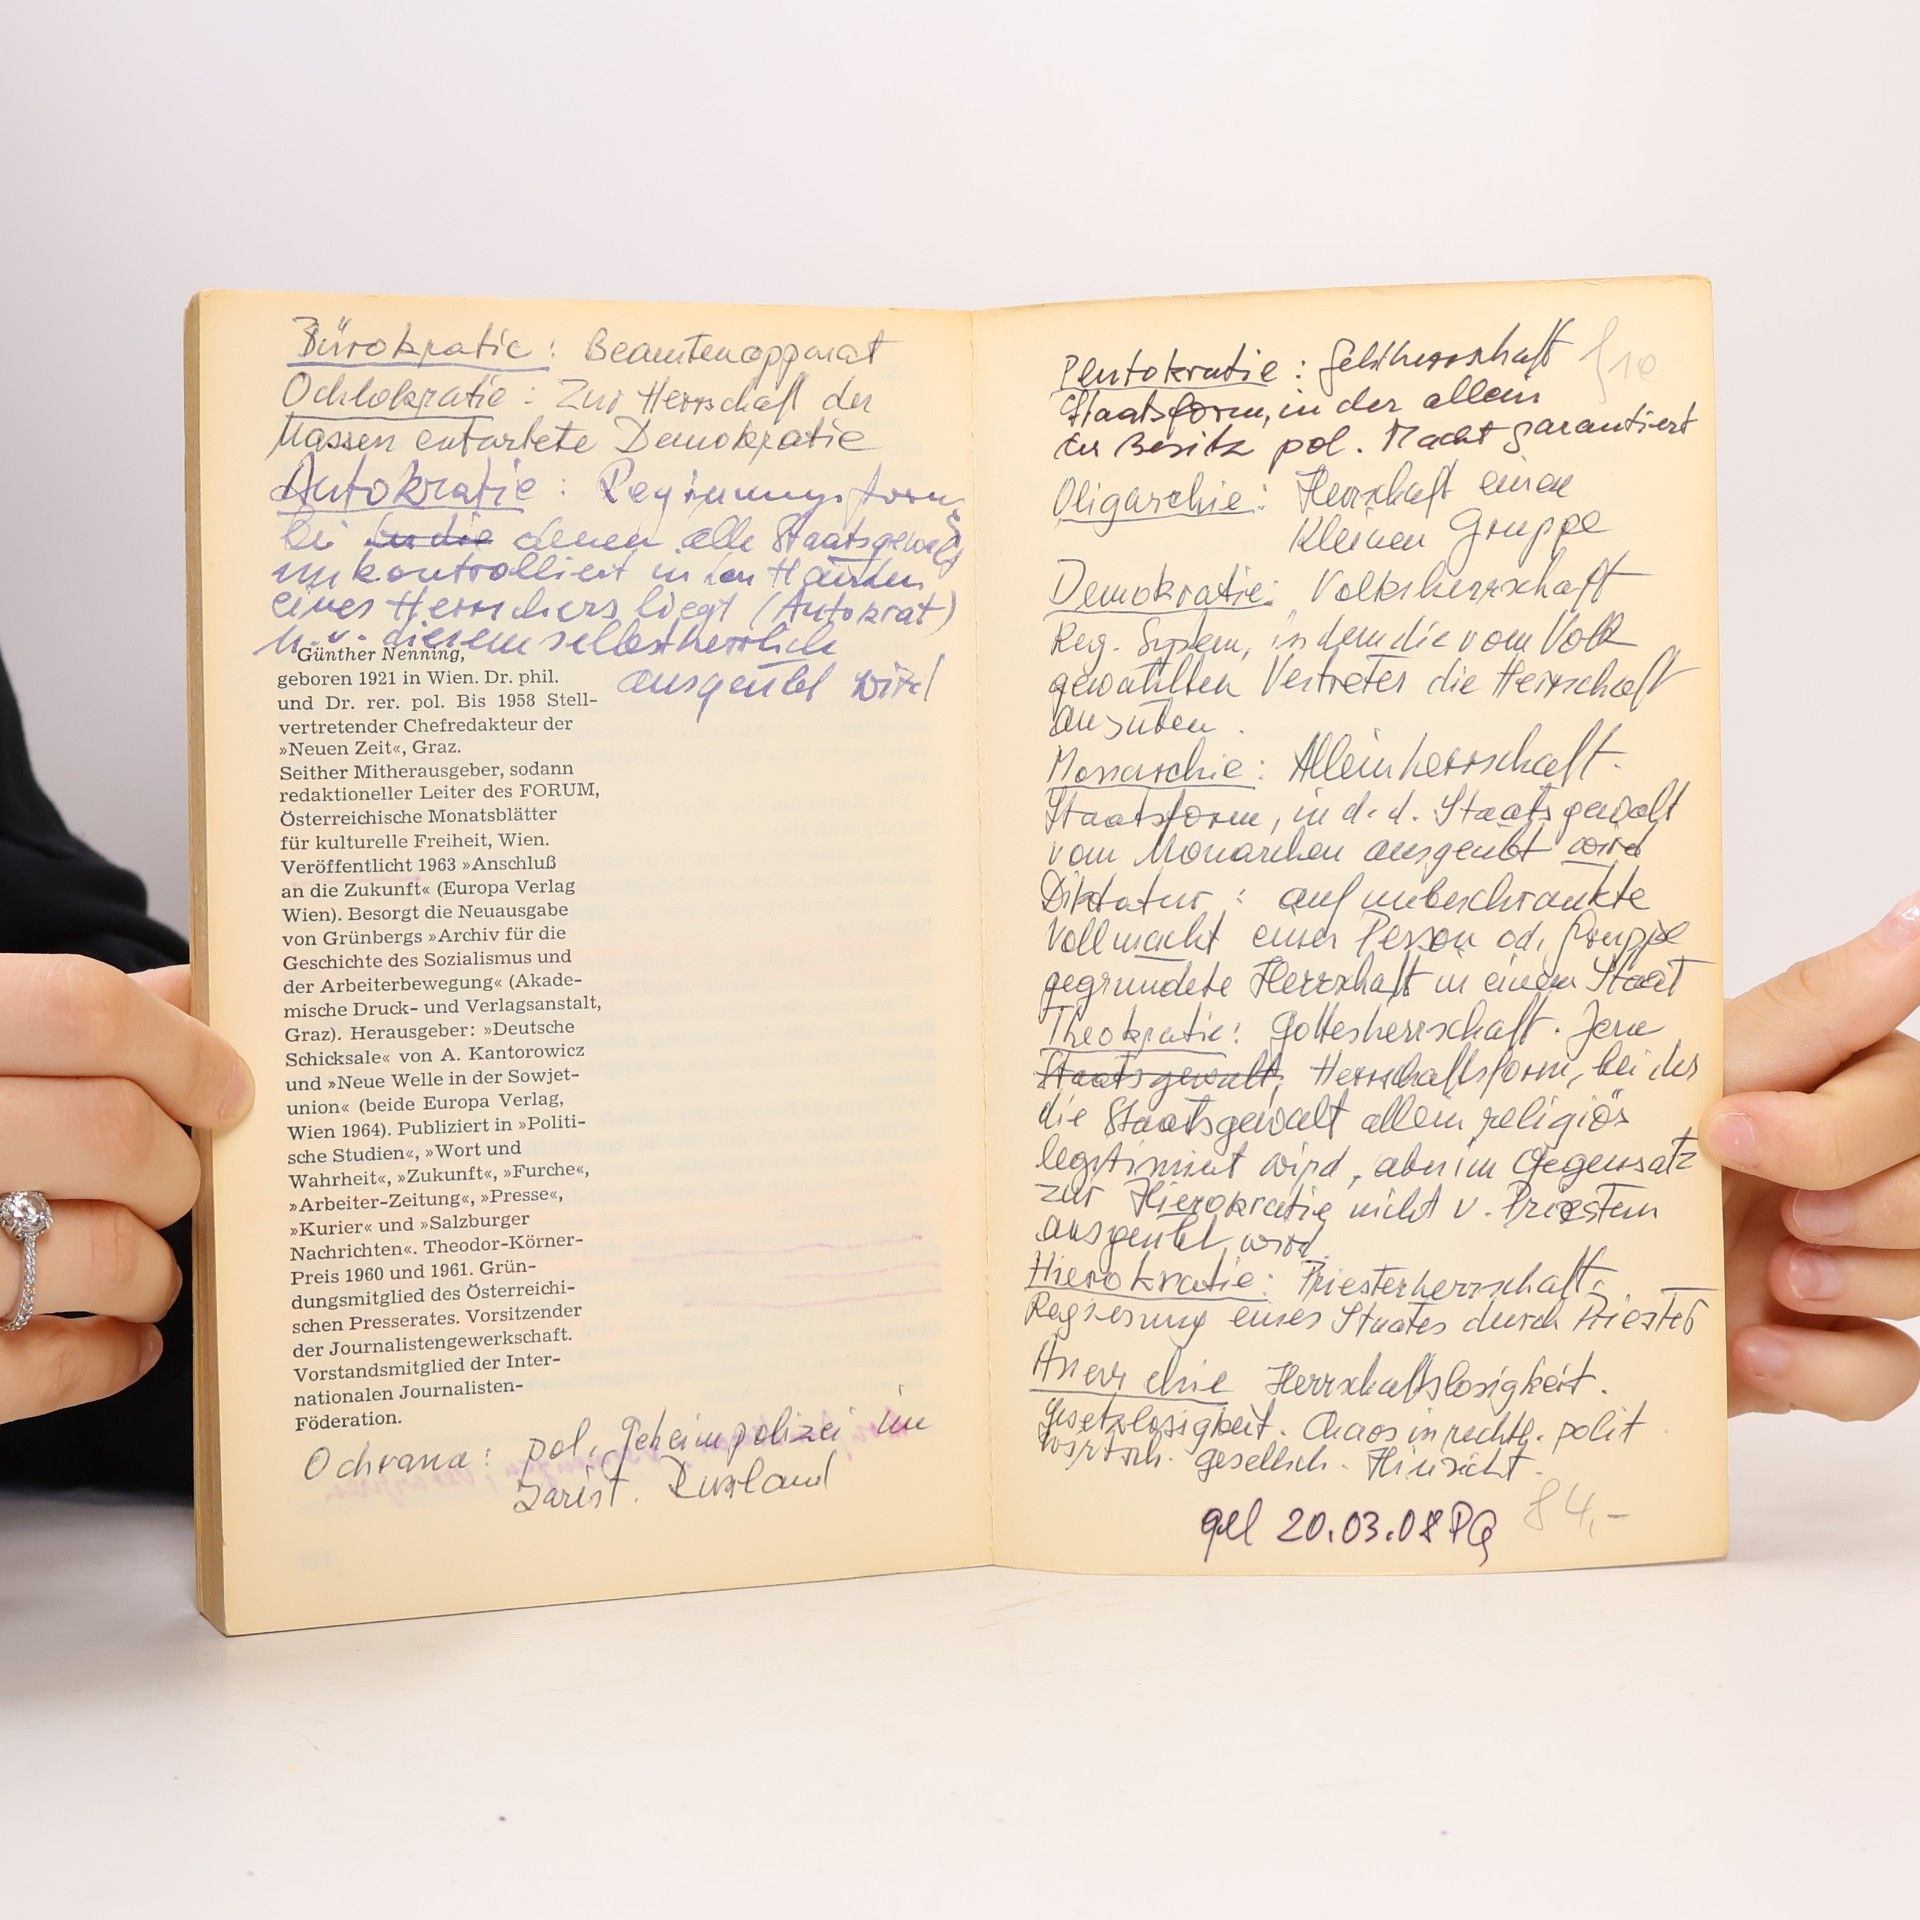 Bürokratie: Beamtenapparat
Ochlokratie: Zur Herrschaft der
Massen entartete Demokratie
Autokratie: Regierungsform,
bei in die denen alle Staatsgewalt
unkontrolliert in den Händen
eines Herrschers liegt (Autokrat)
u. v. diesem selbstherrlich
ausgeübt wird
Günther Nenning,
geboren 1921 in Wien. Dr. phil.
und Dr. rer. pol. Bis 1958 Stell-
vertretender Chefredakteur der
»Neuen Zeit«, Graz.
Seither Mitherausgeber, sodann
redaktioneller Leiter des FORUM,
Österreichische Monatsblätter
für kulturelle Freiheit, Wien.
Veröffentlicht 1963 »Anschluß
an die Zukunft« (Europa Verlag
Wien). Besorgt die Neuausgabe
von Grünbergs »Archiv für die
Geschichte des Sozialismus und
der Arbeiterbewegung« (Akade-
mische Druck- und Verlagsanstalt,
Graz). Herausgeber: »Deutsche
Schicksale« von A. Kantorowicz
und »Neue Welle in der Sowjet-
union« (beide Europa Verlag,
Wien 1964). Publiziert in »Politi-
sche Studien«, »Wort und
Wahrheit«, »Zukunft«, »Furche«,
»Arbeiter-Zeitung«, »Presse«,
»Kurier« und »Salzburger
Nachrichten«. Theodor-Körner-
Preis 1960 und 1961. Grün-
dungsmitglied des Österreichi-
schen Presserates. Vorsitzender
der Journalistengewerkschaft.
Vorstandsmitglied der Inter-
nationalen Journalisten-
Föderation.
Ochrana: pol. Geheimpolizei im
Zarist. Russland
Plutokratie: Geldherrschaft
Staatsform, in der allein
der Besitz pol. Macht garantiert
Oligarchie: Herrschaft einer
kleinen Gruppe
Demokratie: Volksherrschaft
Reg. System, in dem die vom Volk
gewählten Vertreter die Herrschaft
ausüben.
Monarchie: Alleinherrschaft.
Staatsform, in d. d. Staatsgewalt
vom Monarchen ausgeübt wird
Diktatur: auf unbeschränkte
Vollmacht einer Person od. Gruppe
gegründete Herrschaft in einem Staat
Theokratie: Gottesherrschaft. Jene
Staatsgewalt, Herrschaftsform, bei der
die Staatsgewalt allein religiös
legitimiert wird, aber im Gegensatz
zur Hierokratie nicht v. Priestern
ausgeübt wird.
Hierokratie: Priesterherrschaft.
Regierung eines Staates durch Priester
Anarchie Herrschaftslosigkeit.
Gesetzlosigkeit. Chaos in rechtl. polit
wirtsch. gesellsch. Hinsicht.
gel 20.03.08 PG
84,-